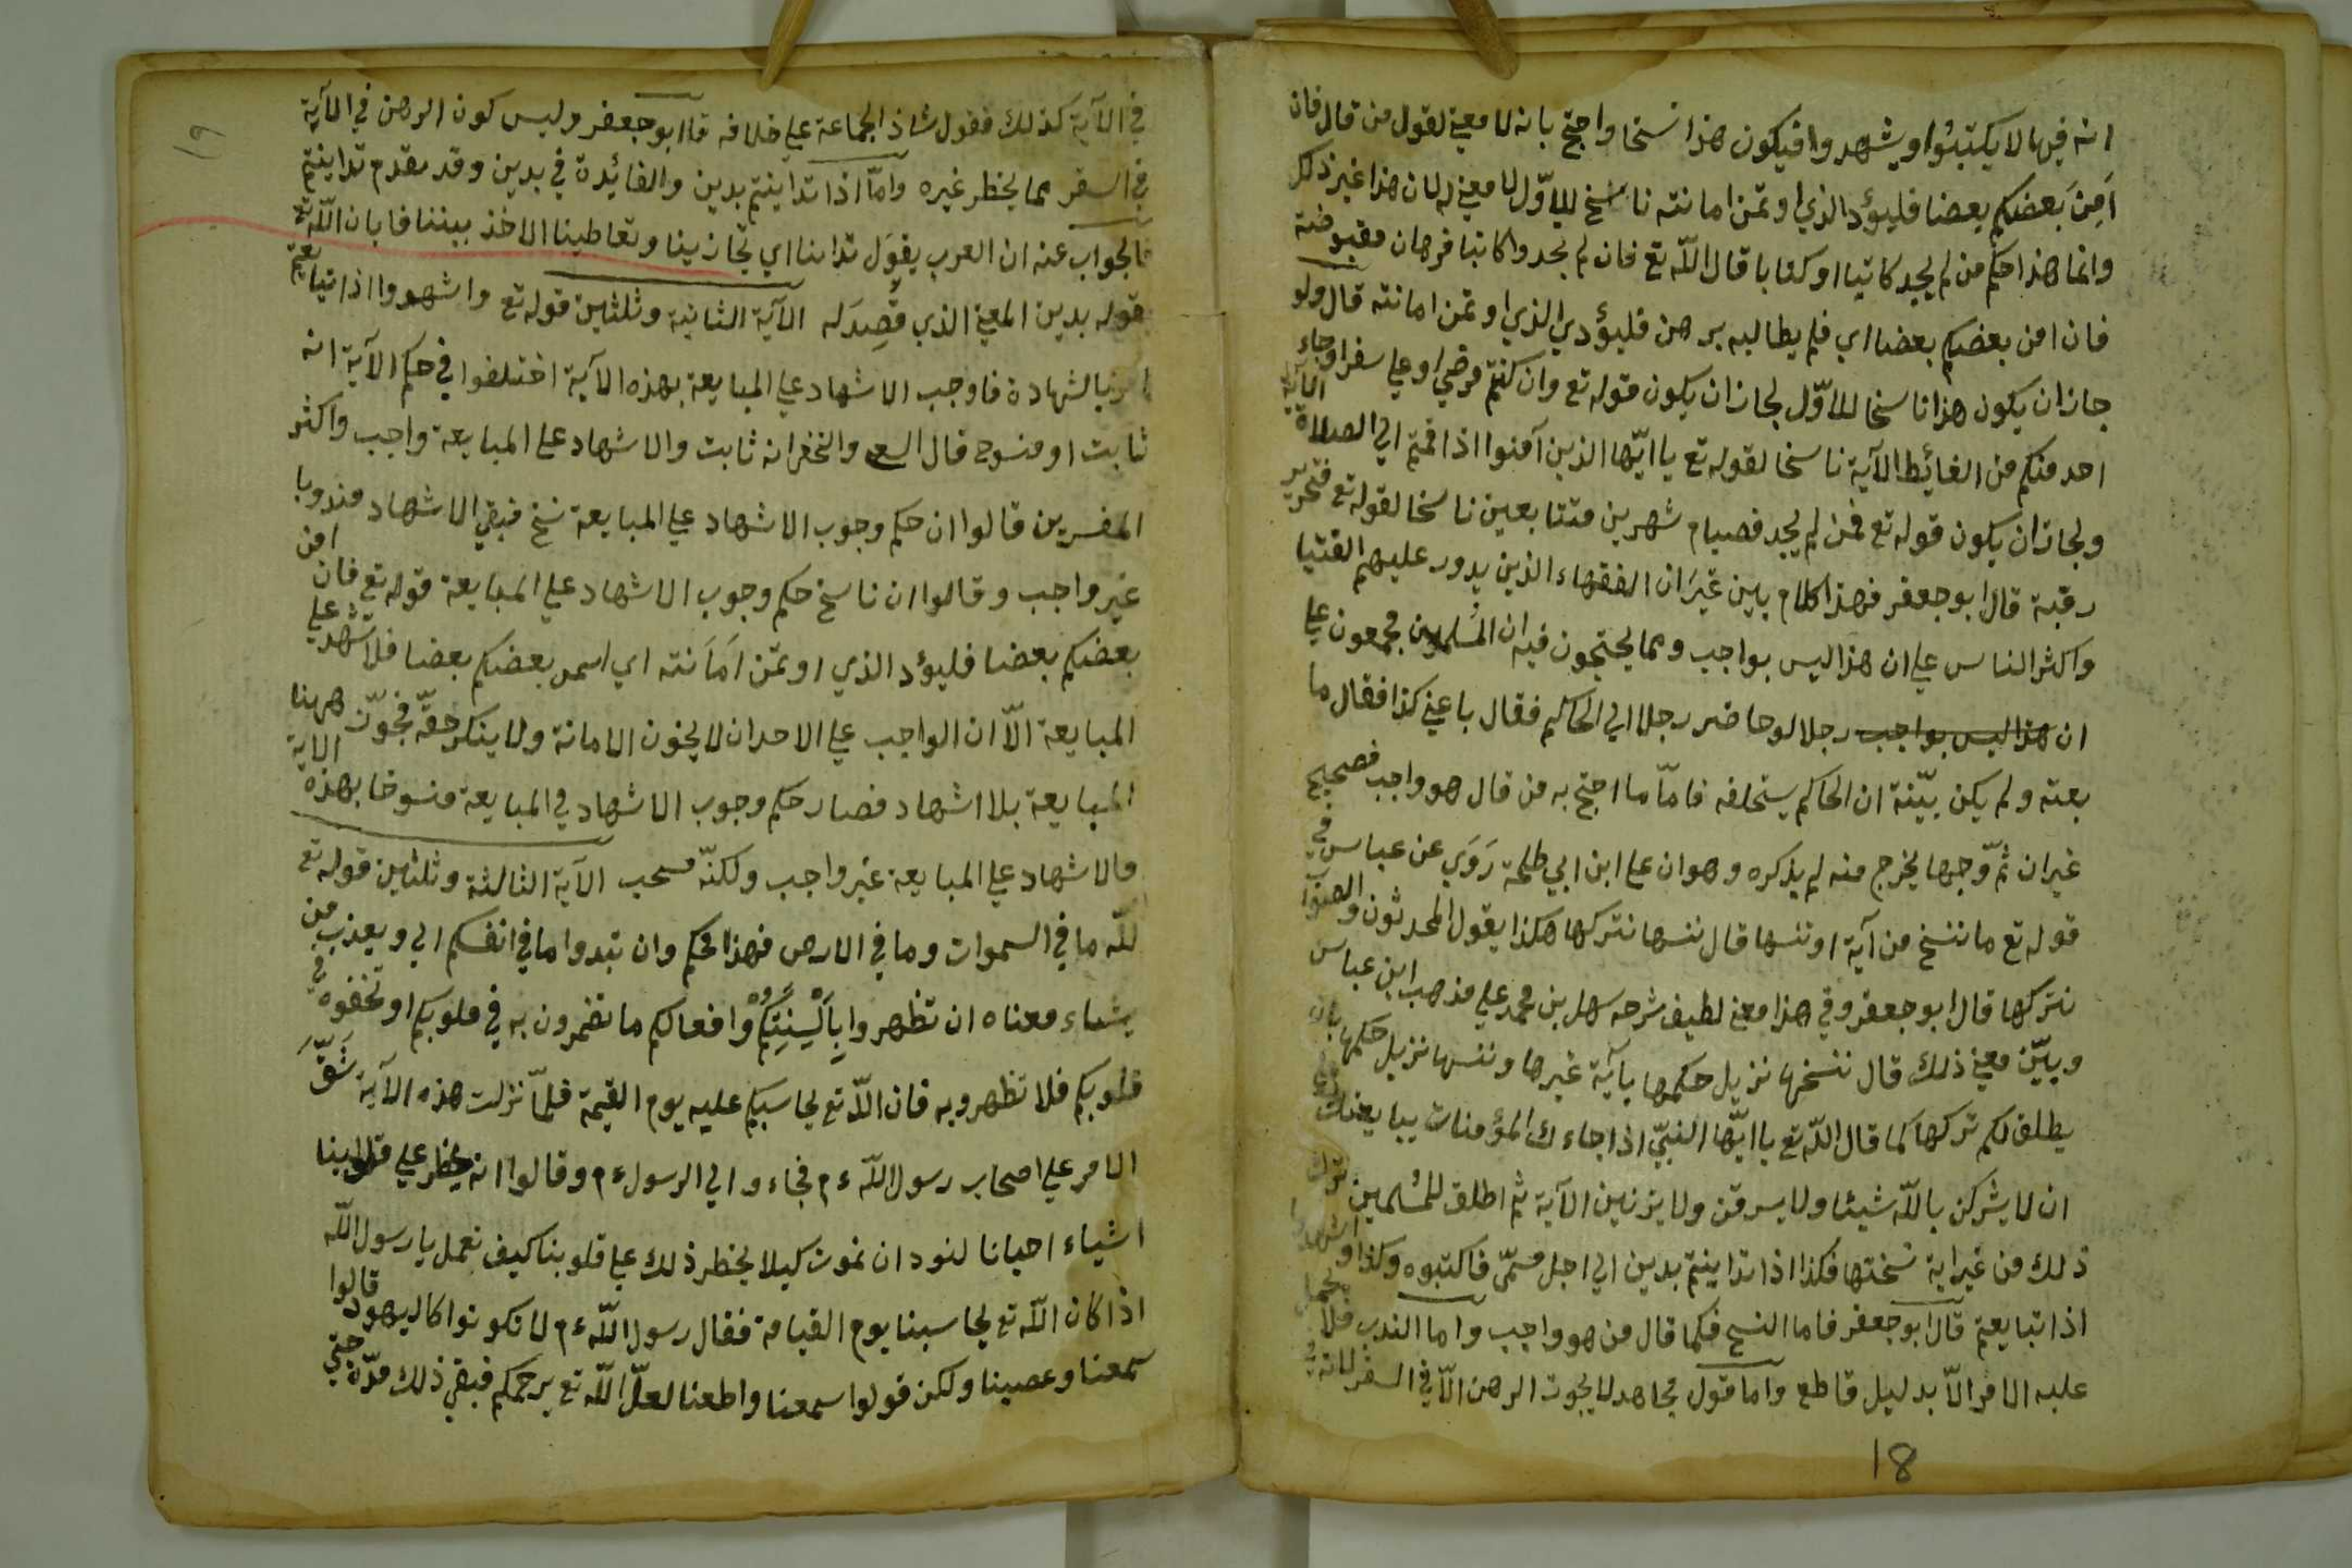 انه فيها لا يكتبوا ويشهدوا فيكون هذا نسخا واحتج بانه لا معني لقول من قال فان
اَمِنَ بَعضكم بعضا فليؤد الذي اوتمن امانته ناسخ للاوّل لا معني له لان هذا غير ذلك
وانما هذا حكم من لم يجد كاتبا او كفابا قال اللّه تع فان لم يجدوا كاتبا فرهان مقبوضة
فان امن بعضكم بعضا اي فلم يطالبه برهن فليؤدي الذي اوتمن امانته قال ولو
جاز ان يكون هذا ناسخا للاوّل لجاز ان يكون قوله تع وان كنتم مرضي او علي سفر او جاء
احد منكم من الغائيط الآية ناسخا لقوله تع يا ايّها الذين آمنوا اذا قمتم الي الصلاة الآية
ولجاز ان يكون قوله تع فمن لم يجد فصيام شهرين متتابعين ناسخا لقوله تع فتحرير
رقبة قال ابو جعفر فهذا كلام بين غيَر ان الفقهاء الذين يدور عليهم الفتيا
واكثر الناس علي ان هذا ليس بواجب ومما يحتجون فيه ان المسلمين مجمعون علي
ان هذا ليس بواجب رجلا لو حاضر رجلا الي الحاكم فقال باعني كذا فقال ما
بعته ولم يكن بيّنة ان الحاكم يستحلفه فامّا ما احتج به من قال هو واجب فصحيح
غير ان ثمّ وجها يخرج منه لم يذكره وهو ان علي ابن ابي طلحة رَوَي عن عباس في
قوله تع ما ننسخ من آية او ننسها قال ننسها نتركها هكذا يقول المحدثون والصوّاب
نتركها قال ابو جعفر وفي هذا معني لطيف شرحه سهل بن محمد علي مذهب ابن عباس
وبيّن معني ذلك قال ننسخها نزيل حكمها بآية غيرها وننسها نزيل حكمها بان
يطلق لكم تركها كما قال اللّه تع يا ايّها النبيّ اذا جاءك المؤمنات يبايعنك علي
ان لا يشركن باللّه شيئا ولا يسرقن ولا يزنين الآية ثم اطلق للمسلمين ترك
ذلك من غير اية نسختها فكذا اذا تداينتم بدين الي اجل مسمّي فاكتبوه وكذا واشهدوا
اذا تبايعتم قال ابو جعفر فاما النسخ فكما قال من هو واجب واما الندب فلا يحمل
عليه الامر الّا بدليل قاطع واما قول مجاهد لا يجوت الرهن الّا في السفر لانه في
18
١٩
في الآية كذلك فقول شاذ الجماعة علي خلافه قال ابو جعفر وليس كون الرهن في الآية
في السفر مما يحظر غيره وامّا اذا تداينتم بدين والفائيدة في بدين وقد تقدم تداينتم
فالجواب عنه ان العرب يقوَل تداينا اي تجازينا وتعاطينا الاخذ بيننا فابان اللّه تع
بقوله بدين المعني الذي قُصِدَ له الآية الثانية وثلثين قوله تع واشهدوا اذا تبايعتم
امرنا بالشهادة فاوجب الاشهاد علي المبايعة بهذه الآية اختلفوا في حكم الآية انه
ثابت او منسوخ قال والنخغي انه ثابت والاشهاد علي المبايعة واجب واكثر
المفسرين قالوا ان حكم وجوب الاشهاد علي المبايعة نسخ فبقي الاشهاد مندوبا
غير واجب وقالوا ان ناسخ حكم وجوب الاشهاد علي المبايعة قوله تع فان امن
بعضكم بعضا فليؤد الذي اوتمن اَمَانته اي بعضكم بعضا فلا شهد علي
المبايعة الّا ان الواجب علي الاحد ان لا يخون الامانة ولا ينكر حقّه فجوّز ههنا
المبايعة بلا اشهاد فصار حكم وجوب الاشهاد في المبايعة منسوخا بهذه الاية
فالاشهاد علي المبايعة غير واجب ولكنّه مستحب الآية الثالثة وثلثين قوله تع
للّه ما في السموات وما في الارض فهذا محكم وان تبدوا ما في انفسكم الي ويعذب من
يشاء معناه ان تظهروا بِاَلْسِنَتِكُمْ وافعالكم ما تضمرون به في قلوبكم او تخفوه في
قلوبكم فلا تظهروبه فان اللّه تع يحاسبكم عليه يوم القيمة فلمّا نزلت هذه الآية شَقّ
الامر علي اصحاب رسول اللّه ءم فجاءوا الي الرسول ءم وقالوا انه يخطر علي قلوبنا
اشياء احيانا لنود ان نموت كيلا يخطر ذلك علي قلوبنا كيف نعمل يا رسول اللّه
اذا كان اللّه تع يحاسبنا يوم القيامة فقال رسول اللّه ءم لا تكونوا كاليهود قالوا
سمعنا وعصينا ولكن قولوا سمعنا واطعنا لعلّ اللّه تع يرحمكم فبقي ذلك مدّة حتي